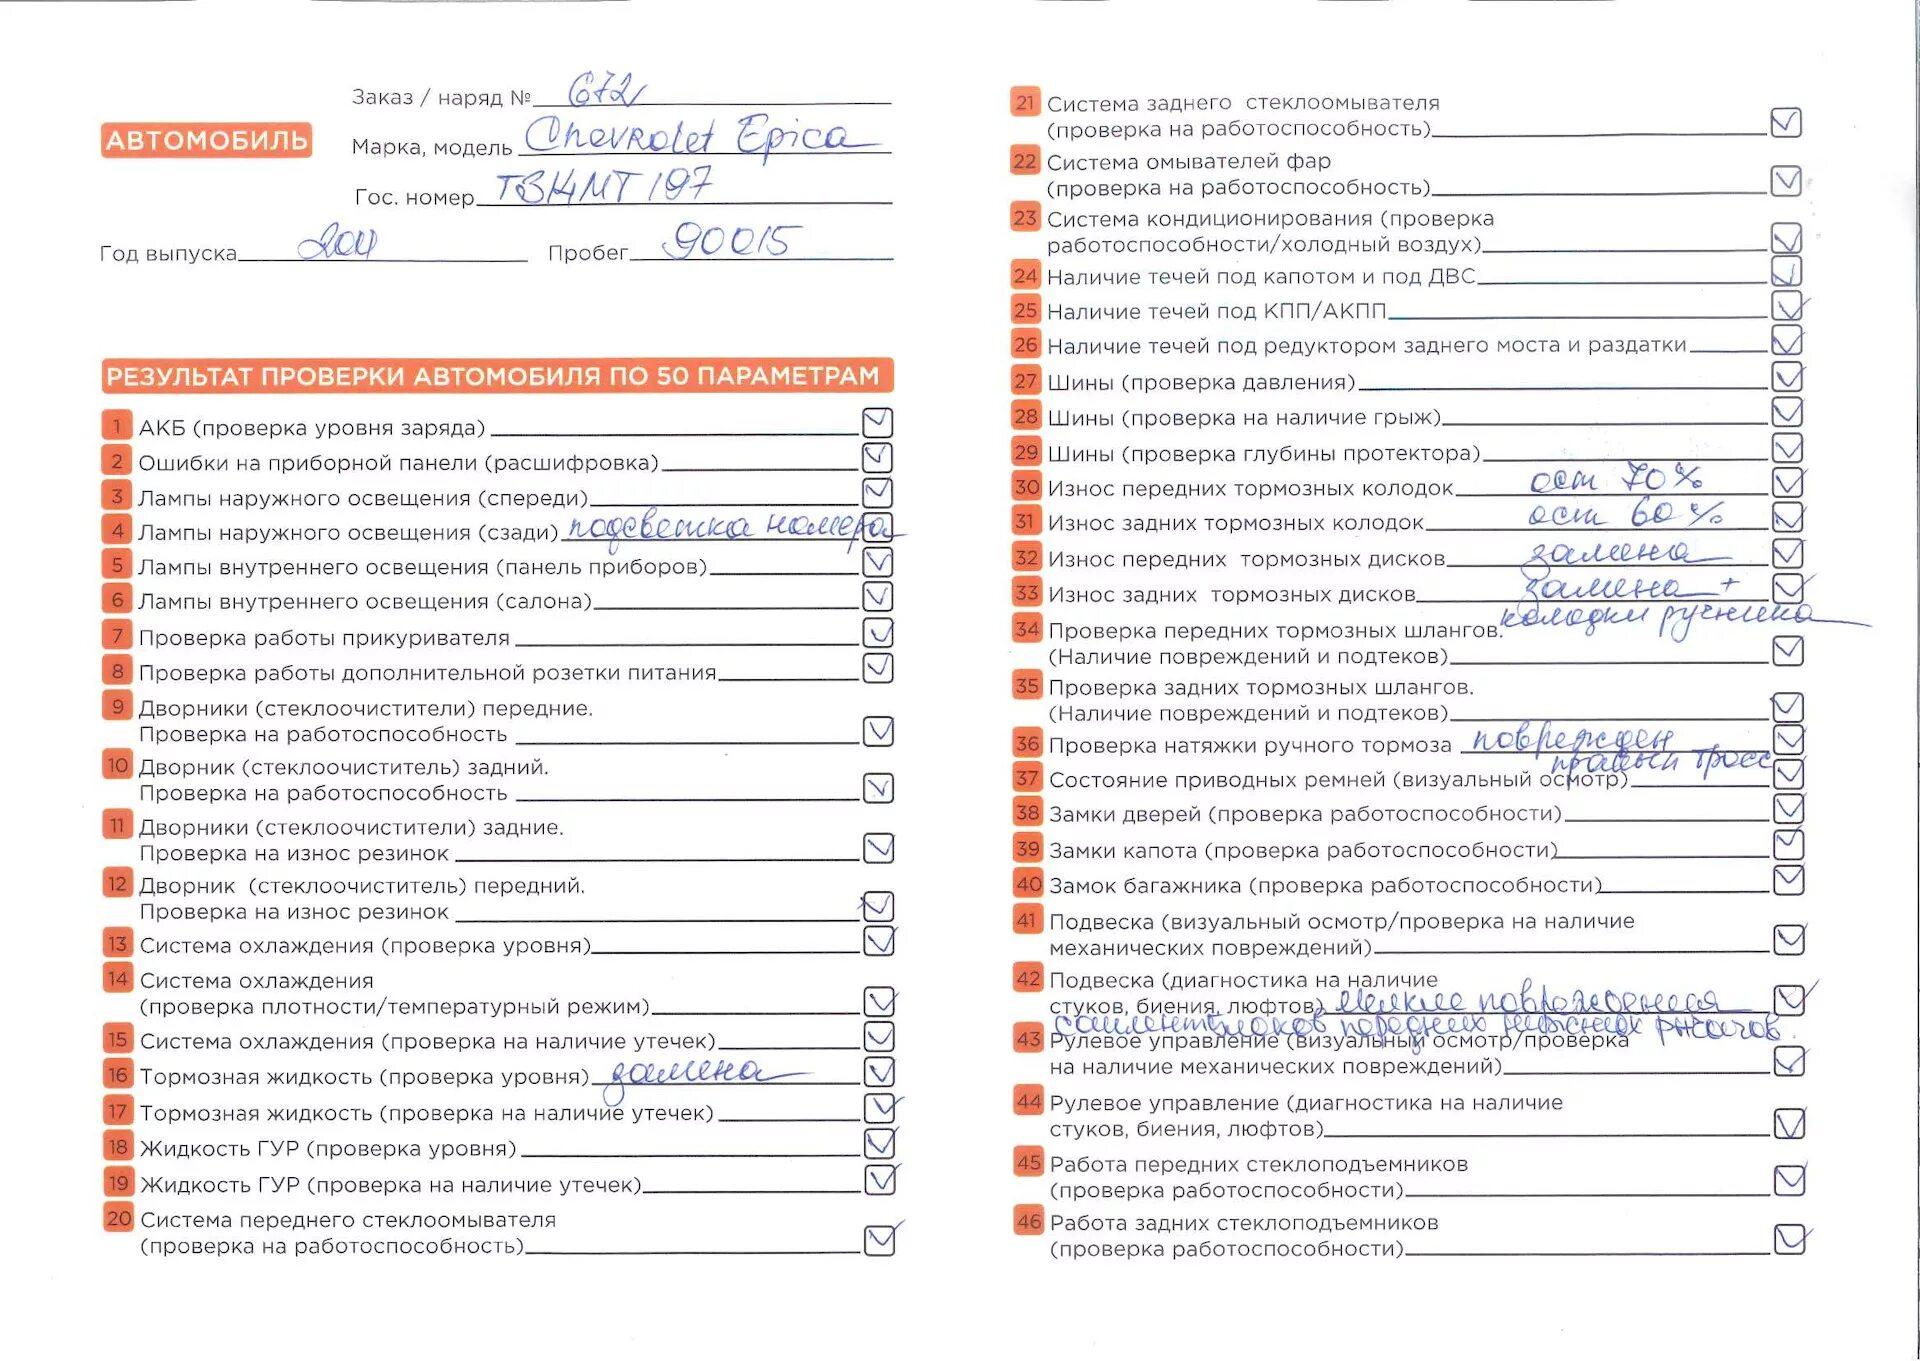 Заказ / наряд № 672
АВТОМОБИЛЬ
Марка, модель Chevrolet Epica
Гос. номер
Год выпуска 2011 Пробег 90015
РЕЗУЛЬТАТ ПРОВЕРКИ АВТОМОБИЛЯ ПО 50 ПАРАМЕТРАМ
1 АКБ (проверка уровня заряда)
2 Ошибки на приборной панели (расшифровка)
3 Лампы наружного освещения (спереди)
4 Лампы наружного освещения (сзади) подсветка номера
5 Лампы внутреннего освещения (панель приборов)
6 Лампы внутреннего освещения (салона)
7 Проверка работы прикуривателя
8 Проверка работы дополнительной розетки питания
9 Дворники (стеклоочистители) передние.
Проверка на работоспособность
10 Дворник (стеклоочиститель) задний.
Проверка на работоспособность
11 Дворники (стеклоочистители) задние.
Проверка на износ резинок
12 Дворник (стеклоочиститель) передний.
Проверка на износ резинок
13 Система охлаждения (проверка уровня)
14 Система охлаждения
(проверка плотности/температурный режим)
15 Система охлаждения (проверка на наличие утечек)
16 Тормозная жидкость (проверка уровня) замена
17 Тормозная жидкость (проверка на наличие утечек)
18 Жидкость ГУР (проверка уровня)
19 Жидкость ГУР (проверка на наличие утечек)
20 Система переднего стеклоомывателя
(проверка на работоспособность)
21 Система заднего стеклоомывателя
(проверка на работоспособность)
22 Система омывателей фар
(проверка на работоспособность)
23 Система кондиционирования (проверка
работоспособности/холодный воздух)
24 Наличие течей под капотом и под ДВС
25 Наличие течей под КПП/АКПП
26 Наличие течей под редуктором заднего моста и раздатки
27 Шины (проверка давления)
28 Шины (проверка на наличие грыж)
29 Шины (проверка глубины протектора)
30 Износ передних тормозных колодок ост 70%
31 Износ задних тормозных колодок ост 60%
32 Износ передних тормозных дисков замена
33 Износ задних тормозных дисков замена +
колодки ручника
34 Проверка передних тормозных шлангов.
(Наличие повреждений и подтеков)
35 Проверка задних тормозных шлангов.
(Наличие повреждений и подтеков)
36 Проверка натяжки ручного тормоза поврежден
правый тросс
37 Состояние приводных ремней (визуальный осмотр)
38 Замки дверей (проверка работоспособности)
39 Замки капота (проверка работоспособности)
40 Замок багажника (проверка работоспособности)
41 Подвеска (визуальный осмотр/проверка на наличие
механических повреждений)
42 Подвеска (диагностика на наличие
стуков, биения, люфтов) мелкие повреждения
сайлентблоков передних нижних рычагов.
43 Рулевое управление (визуальный осмотр/проверка
на наличие механических повреждений)
44 Рулевое управление (диагностика на наличие
стуков, биения, люфтов)
45 Работа передних стеклоподъемников
(проверка работоспособности)
46 Работа задних стеклоподъемников
(проверка работоспособности)